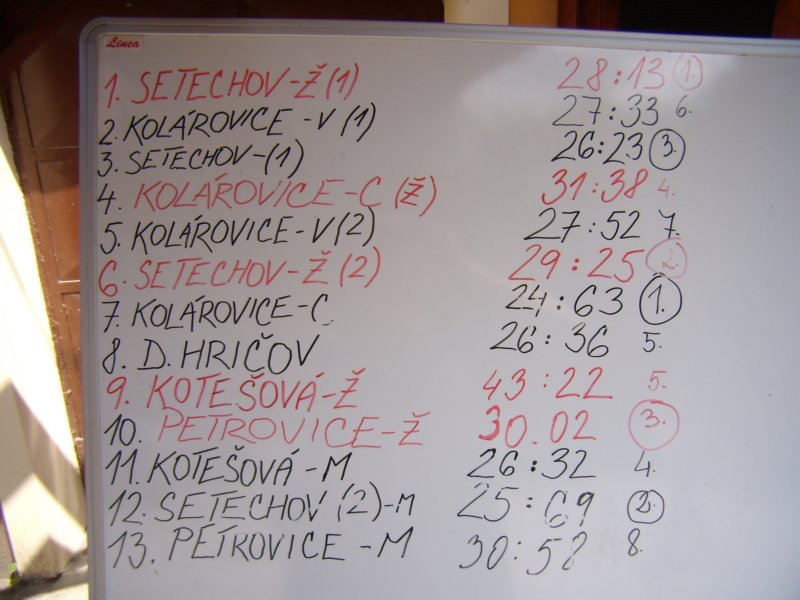 Linea
1. SETECHOV-Ž (1) 28:13 1.
2. KOLÁROVICE - V (1) 27:33 6.
3. SETECHOV-(1) 26:23 3.
4. KOLÁROVICE-C (Ž) 31:38 4.
5. KOLÁROVICE-V(2) 27:52 7.
6. SETECHOV-Ž (2) 29:25 2.
7. KOLÁROVICE-C 24:63 1.
8. D. HRIČOV 26:36 5.
9. KOTEŠOVÁ-Ž 43:22 5.
10. PETROVICE-Ž 30.02 3.
11. KOTEŠOVÁ-M 26:32 4.
12. SETECHOV (2)-M 25:69 2.
13. PETROVICE-M 30:58 8.